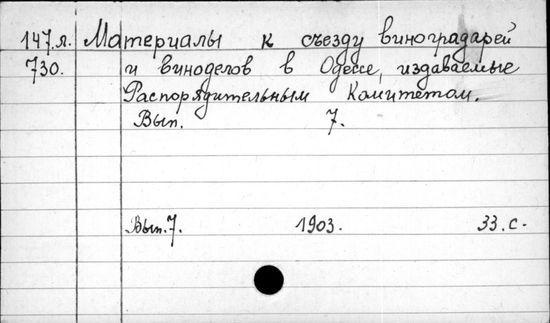 147.л. Материалы к съезду виноградарей
730. и виноделов в Одессе, издаваемые
Распорядительным Комитетом.
Вып. 7.
Вып. 7. 1903. 33. с.